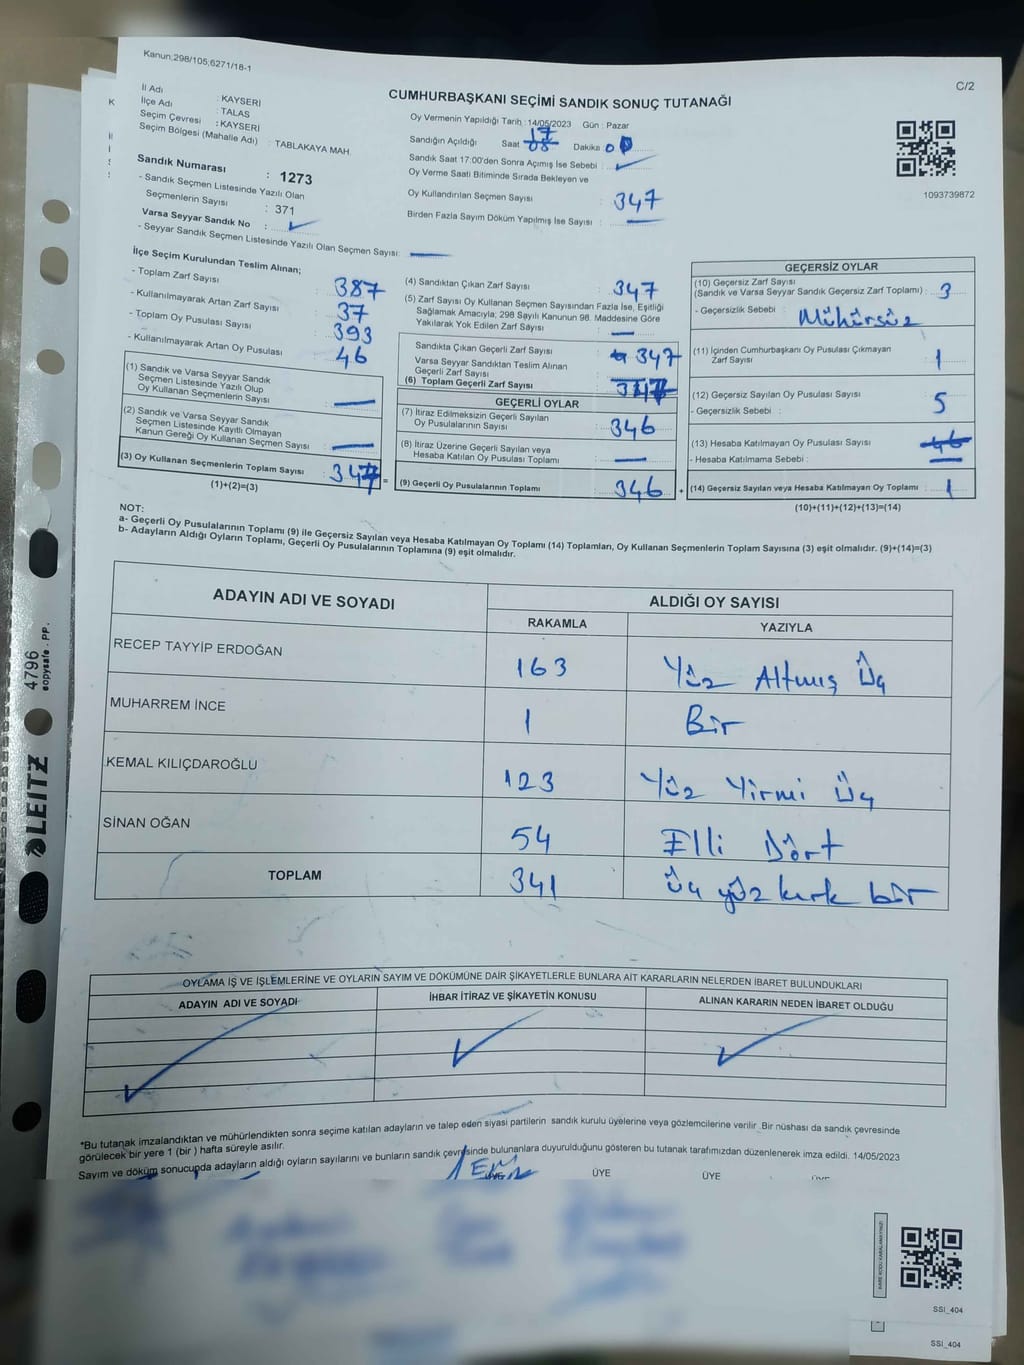 Kanun:298/105,6271/18-1
C/2
CUMHURBAŞKANI SEÇİMİ SANDIK SONUÇ TUTANAĞI
İl Adı : KAYSERİ
İlçe Adı : TALAS
Seçim Çevresi : KAYSERİ
Seçim Bölgesi (Mahalle Adı) : TABLAKAYA MAH.
Oy Vermenin Yapıldığı Tarih :14/05/2023 Gün : Pazar
Sandığın Açıldığı Saat 17 Dakika
Sandık Saat 17:00'den Sonra Açımış İse Sebebi :
Oy Verme Saati Bitiminde Sırada Bekleyen ve
Oy Kullandırılan Seçmen Sayısı : 347
Birden Fazla Sayım Döküm Yapılmış İse Sayısı :
1093739872
Sandık Numarası : 1273
- Sandık Seçmen Listesinde Yazılı Olan
Seçmenlerin Sayısı : 371
Varsa Seyyar Sandık No :
- Seyyar Sandık Seçmen Listesinde Yazılı Olan Seçmen Sayısı:
İlçe Seçim Kurulundan Teslim Alınan;
- Toplam Zarf Sayısı : 387
- Kullanılmayarak Artan Zarf Sayısı : 37
- Toplam Oy Pusulası Sayısı : 393
- Kullanılmayarak Artan Oy Pusulası : 46
(1) Sandık ve Varsa Seyyar Sandık
Seçmen Listesinde Yazılı Olup
Oy Kullanan Seçmenlerin Sayısı :
(2) Sandık ve Varsa Seyyar Sandık
Seçmen Listesinde Kayıtlı Olmayan
Kanun Gereği Oy Kullanan Seçmen Sayısı :
(3) Oy Kullanan Seçmenlerin Toplam Sayısı : 347
(1)+(2)=(3)
(4) Sandıktan Çıkan Zarf Sayısı : 347
(5) Zarf Sayısı Oy Kullanan Seçmen Sayısından Fazla İse, Eşitliği
Sağlamak Amacıyla; 298 Sayılı Kanunun 98. Maddesine Göre
Yakılarak Yok Edilen Zarf Sayısı :
Sandıkta Çıkan Geçerli Zarf Sayısı : 347
Varsa Seyyar Sandıktan Teslim Alınan
Geçerli Zarf Sayısı :
(6) Toplam Geçerli Zarf Sayısı : 347
GEÇERLİ OYLAR
(7) İtiraz Edilmeksizin Geçerli Sayılan
Oy Pusulalarının Sayısı : 346
(8) İtiraz Üzerine Geçerli Sayılan veya
Hesaba Katılan Oy Pusulası Toplamı :
= (9) Geçerli Oy Pusulalarının Toplamı : 346 +
GEÇERSİZ OYLAR
(10) Geçersiz Zarf Sayısı
(Sandık ve Varsa Seyyar Sandık Geçersiz Zarf Toplamı) : 3
- Geçersizlik Sebebi : Mühürsüz
(11) İçinden Cumhurbaşkanı Oy Pusulası Çıkmayan
Zarf Sayısı : 1
(12) Geçersiz Sayılan Oy Pusulası Sayısı : 5
- Geçersizlik Sebebi :
(13) Hesaba Katılmayan Oy Pusulası Sayısı : 46
- Hesaba Katılmama Sebebi :
(14) Geçersiz Sayılan veya Hesaba Katılmayan Oy Toplamı : 1
(10)+(11)+(12)+(13)=(14)
NOT:
a- Geçerli Oy Pusulalarının Toplamı (9) ile Geçersiz Sayılan veya Hesaba Katılmayan Oy Toplamı (14) Toplamları, Oy Kullanan Seçmenlerin Toplam Sayısına (3) eşit olmalıdır. (9)+(14)=(3)
b- Adayların Aldığı Oyların Toplamı, Geçerli Oy Pusulalarının Toplamına (9) eşit olmalıdır.
ADAYIN ADI VE SOYADI ALDIĞI OY SAYISI
RAKAMLA YAZIYLA
RECEP TAYYİP ERDOĞAN 163 Yüz Altmış Üç
MUHARREM İNCE 1 Bir
KEMAL KILIÇDAROĞLU 123 Yüz Yirmi Üç
SİNAN OĞAN 54 Elli Dört
TOPLAM 341 Üç yüz kırk bir
OYLAMA İŞ VE İŞLEMLERİNE VE OYLARIN SAYIM VE DÖKÜMÜNE DAİR ŞİKAYETLERLE BUNLARA AİT KARARLARIN NELERDEN İBARET BULUNDUKLARI
ADAYIN ADI VE SOYADI İHBAR İTİRAZ VE ŞİKAYETİN KONUSU ALINAN KARARIN NEDEN İBARET OLDUĞU
*Bu tutanak imzalandıktan ve mühürlendikten sonra seçime katılan adayların ve talep eden siyasi partilerin sandık kurulu üyelerine veya gözlemcilerine verilir .Bir nüshası da sandık çevresinde
görülecek bir yere 1 (bir ) hafta süreyle asılır.
Sayım ve döküm sonucunda adayların aldığı oyların sayılarını ve bunların sandık çevresinde bulunanlara duyurulduğunu gösteren bu tutanak tarafımızdan düzenlenerek imza edildi. 14/05/2023
ÜYE ÜYE ÜYE ÜYE
4796
copysafe . PP.
LEITZ
SSI_404
SSI_404